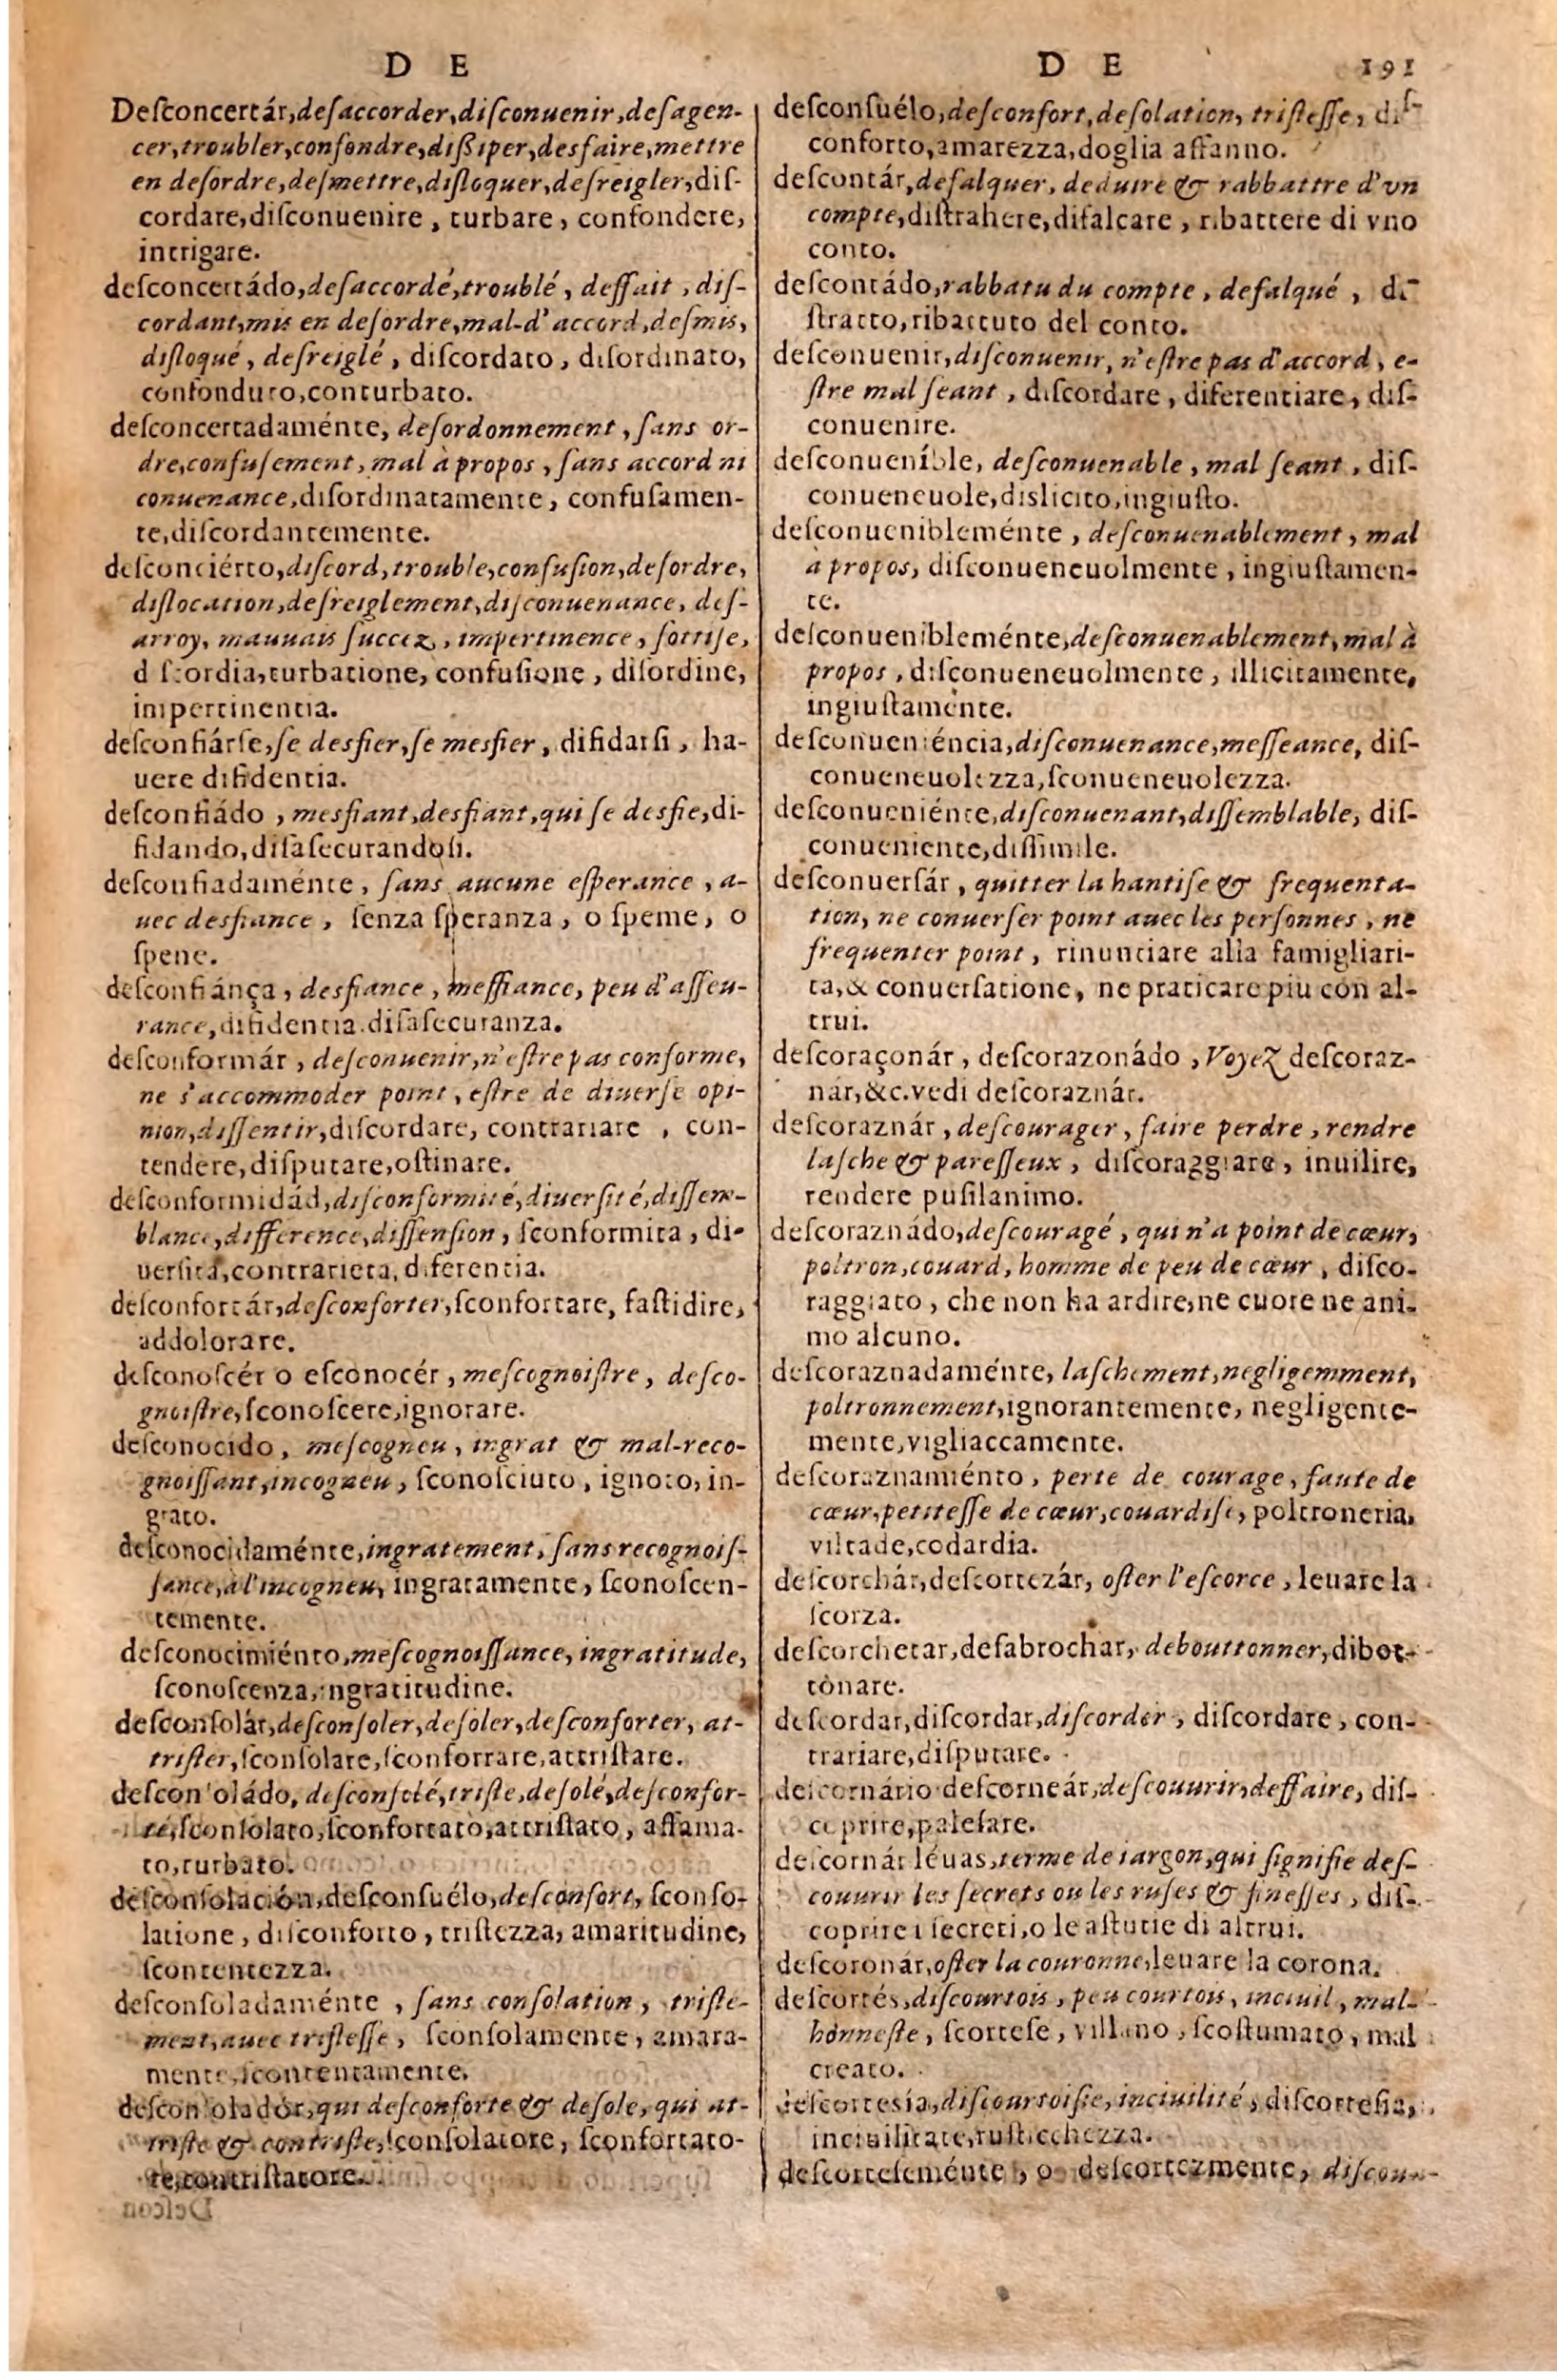 D E
Deſconcertár,deſaccorder,diſconuenir,deſagen-
cer,troubler,confondre,diſsiper,desfaire,mettre
en deſordre,deſmettre,diſloquer,deſreigler,diſ-
cordare,diſconuenire, turbare, confondere,
intrigare.
deſconcertádo,deſaccordé,troublé, deſfait, diſ-
cordant,mis en deſordre,mal-d'accord,deſmis,
diſloqué, deſreiglé, diſcordato, diſordinato,
confonduto,conturbato.
deſconcertadaménte, deſordonnement, ſans or-
dre,confuſement, mal à propos, ſans accord ni
conuenance,diſordinatamente, confuſamen-
te,diſcordantemente.
deſconciérto,diſcord,trouble,confuſion,deſordre,
diſlocation,deſreiglement,diſconuenance, deſ-
arroy, mauuais ſuccez, impertinence, ſottiſe,
diſcordia,turbatione, confuſione, diſordine,
impertinentia.
deſconfiárſe,ſe desfier,ſe mesfier, difidarſi, ha-
uere difidentia.
deſconfiádo, mesfiant,desfiant,qui ſe desfie,di-
fidando,diſaſecurandoſi.
deſconfiadaménte, ſans aucune eſperance, a-
uec desfiance, ſenza ſperanza, o ſpeme, o
ſpene.
deſconfiánça, desfiance, meſfiance, peu d'aſſeu-
rance,difidentia.diſaſecuranza.
deſconformár, deſconuenir,n'eſtre pas conforme,
ne s'accommoder point, eſtre de diuerſe opi-
nion,diſſentir,diſcordare, contrariare, con-
tendere,diſputare,oſtinare.
deſconformidád,diſconformité,diuerſité,diſſem-
blance,difference,diſſenſion, ſconformita, di-
uerſita,contrarieta, diferentia.
deſconfortár,deſconforter,ſconfortare, faſtidire,
addolorare.
deſconoſcér o eſconocér, meſcognoiſtre, deſco-
gnoiſtre,ſconoſcere,ignorare.
deſconocido, meſcogneu, ingrat & mal-reco-
gnoiſſant,incogneu, ſconoſciuto, ignoto, in-
grato.
deſconocidaménte,ingratement, ſans recognoiſ-
ſance,à l'incogneu, ingratamente, ſconoſcen-
temente.
deſconocimiénto,meſcognoiſſance, ingratitude,
ſconoſcenza,ingratitudine.
deſconſolár,deſconſoler,deſoler,deſconforter, at-
triſter,ſconſolare,ſconforrare,attriſtare.
deſconſoládo, deſconſolé,triſte,deſolé,deſconfor-
té,ſconſolato,ſconfortato,attriſtato, aſfama-
to,turbato.
deſconſolación,deſconſuélo,deſconfort, ſconſo-
latione, diſconforto, triſtezza, amaritudine,
ſcontentezza.
deſconſoladaménte, ſans conſolation, triſte-
ment,auec triſteſſe, ſconſolamente, amara-
mente,ſcontentamente.
deſconſoladór,qui deſconforte & deſole, qui at-
triſte & contriſte,ſconſolatore, ſconfortato-
re,contriſtatore.
D E 191
deſconſuélo,deſconfort,deſolation, triſteſſe, diſ-
conforto,amarezza,doglia aſfanno.
deſcontár,defalquer, deduire & rabbattre d'vn
compte,diſtrahere,difalcare, ribattere di vno
conto.
deſcontádo,rabbatu du compte, defalqué, di-
ſtratto,ribattuto del conto.
deſconuenir,diſconuenir, n'eſtre pas d'accord, e-
ſtre mal ſeant, diſcordare, diferentiare, diſ-
conuenire.
deſconueníble, deſconuenable, mal ſeant, diſ-
conueneuole,dislicito,ingiuſto.
deſconuenibleménte, deſconuenablement, mal
à propos, diſconueneuolmente, ingiuſtamen-
te.
deſconuenibleménte,deſconuenablement,mal à
propos, diſconueneuolmente, illicitamente,
ingiuſtamente.
deſconueniéncia,diſconuenance,meſſeance, diſ-
conueneuolezza,ſconueneuolezza.
deſconueniénte,diſconuenant,diſſemblable, diſ-
conueniente,diſſimile.
deſconuerſár, quitter la hantiſe & frequenta-
tion, ne conuerſer point auec les perſonnes, ne
frequenter point, rinunciare alla famigliari-
ta,& conuerſatione, ne praticare piu con al-
trui.
deſcoraçonár, deſcorazonádo, Voyez deſcoraz-
nár,&c.vedi deſcoraznár.
deſcoraznár, deſcourager, faire perdre, rendre
laſche & pareſſeux, diſcoraggiare, inuilire,
rendere puſilanimo.
deſcoraznádo,deſcouragé, qui n'a point de cœur,
poltron,couard, homme de peu de cœur, diſco-
raggiato, che non ha ardire,ne cuore ne ani-
mo alcuno.
deſcoraznadaménte, laſchement,negligemment,
poltronnement,ignorantemente, negligente-
mente,vigliaccamente.
deſcoraznamiénto, perte de courage, faute de
cœur,petiteſſe de cœur,couardiſe, poltroneria,
viltade,codardia.
deſcorchár,deſcortezár, oſter l'eſcorce, leuare la
ſcorza.
deſcorchetar,deſabrochar, debouttonner,dibot-
tonare.
deſcordar,diſcordar,diſcorder, diſcordare, con-
trariare,diſputare.
deſcornár,o deſcorneár,deſcouurir,deffaire, diſ-
coprire,paleſare.
deſcornár léuas,terme de iargon,qui ſignifie deſ-
couurir les ſecrets ou les ruſes & fineſſes, diſ-
coprire i ſecreti,o le aſtutie di altrui.
deſcoronár,oſter la couronne,leuare la corona.
deſcortés,diſcourtois, peu courtois, inciuil, mal-
honneſte, ſcorteſe, villano, ſcoſtumato, mal
creato.
deſcorteſía,diſcourtoiſie,inciuilité, diſcorteſia,
inciuilitate,ruſticchezza.
deſcorteſeménte, o deſcortezmente, diſcour-